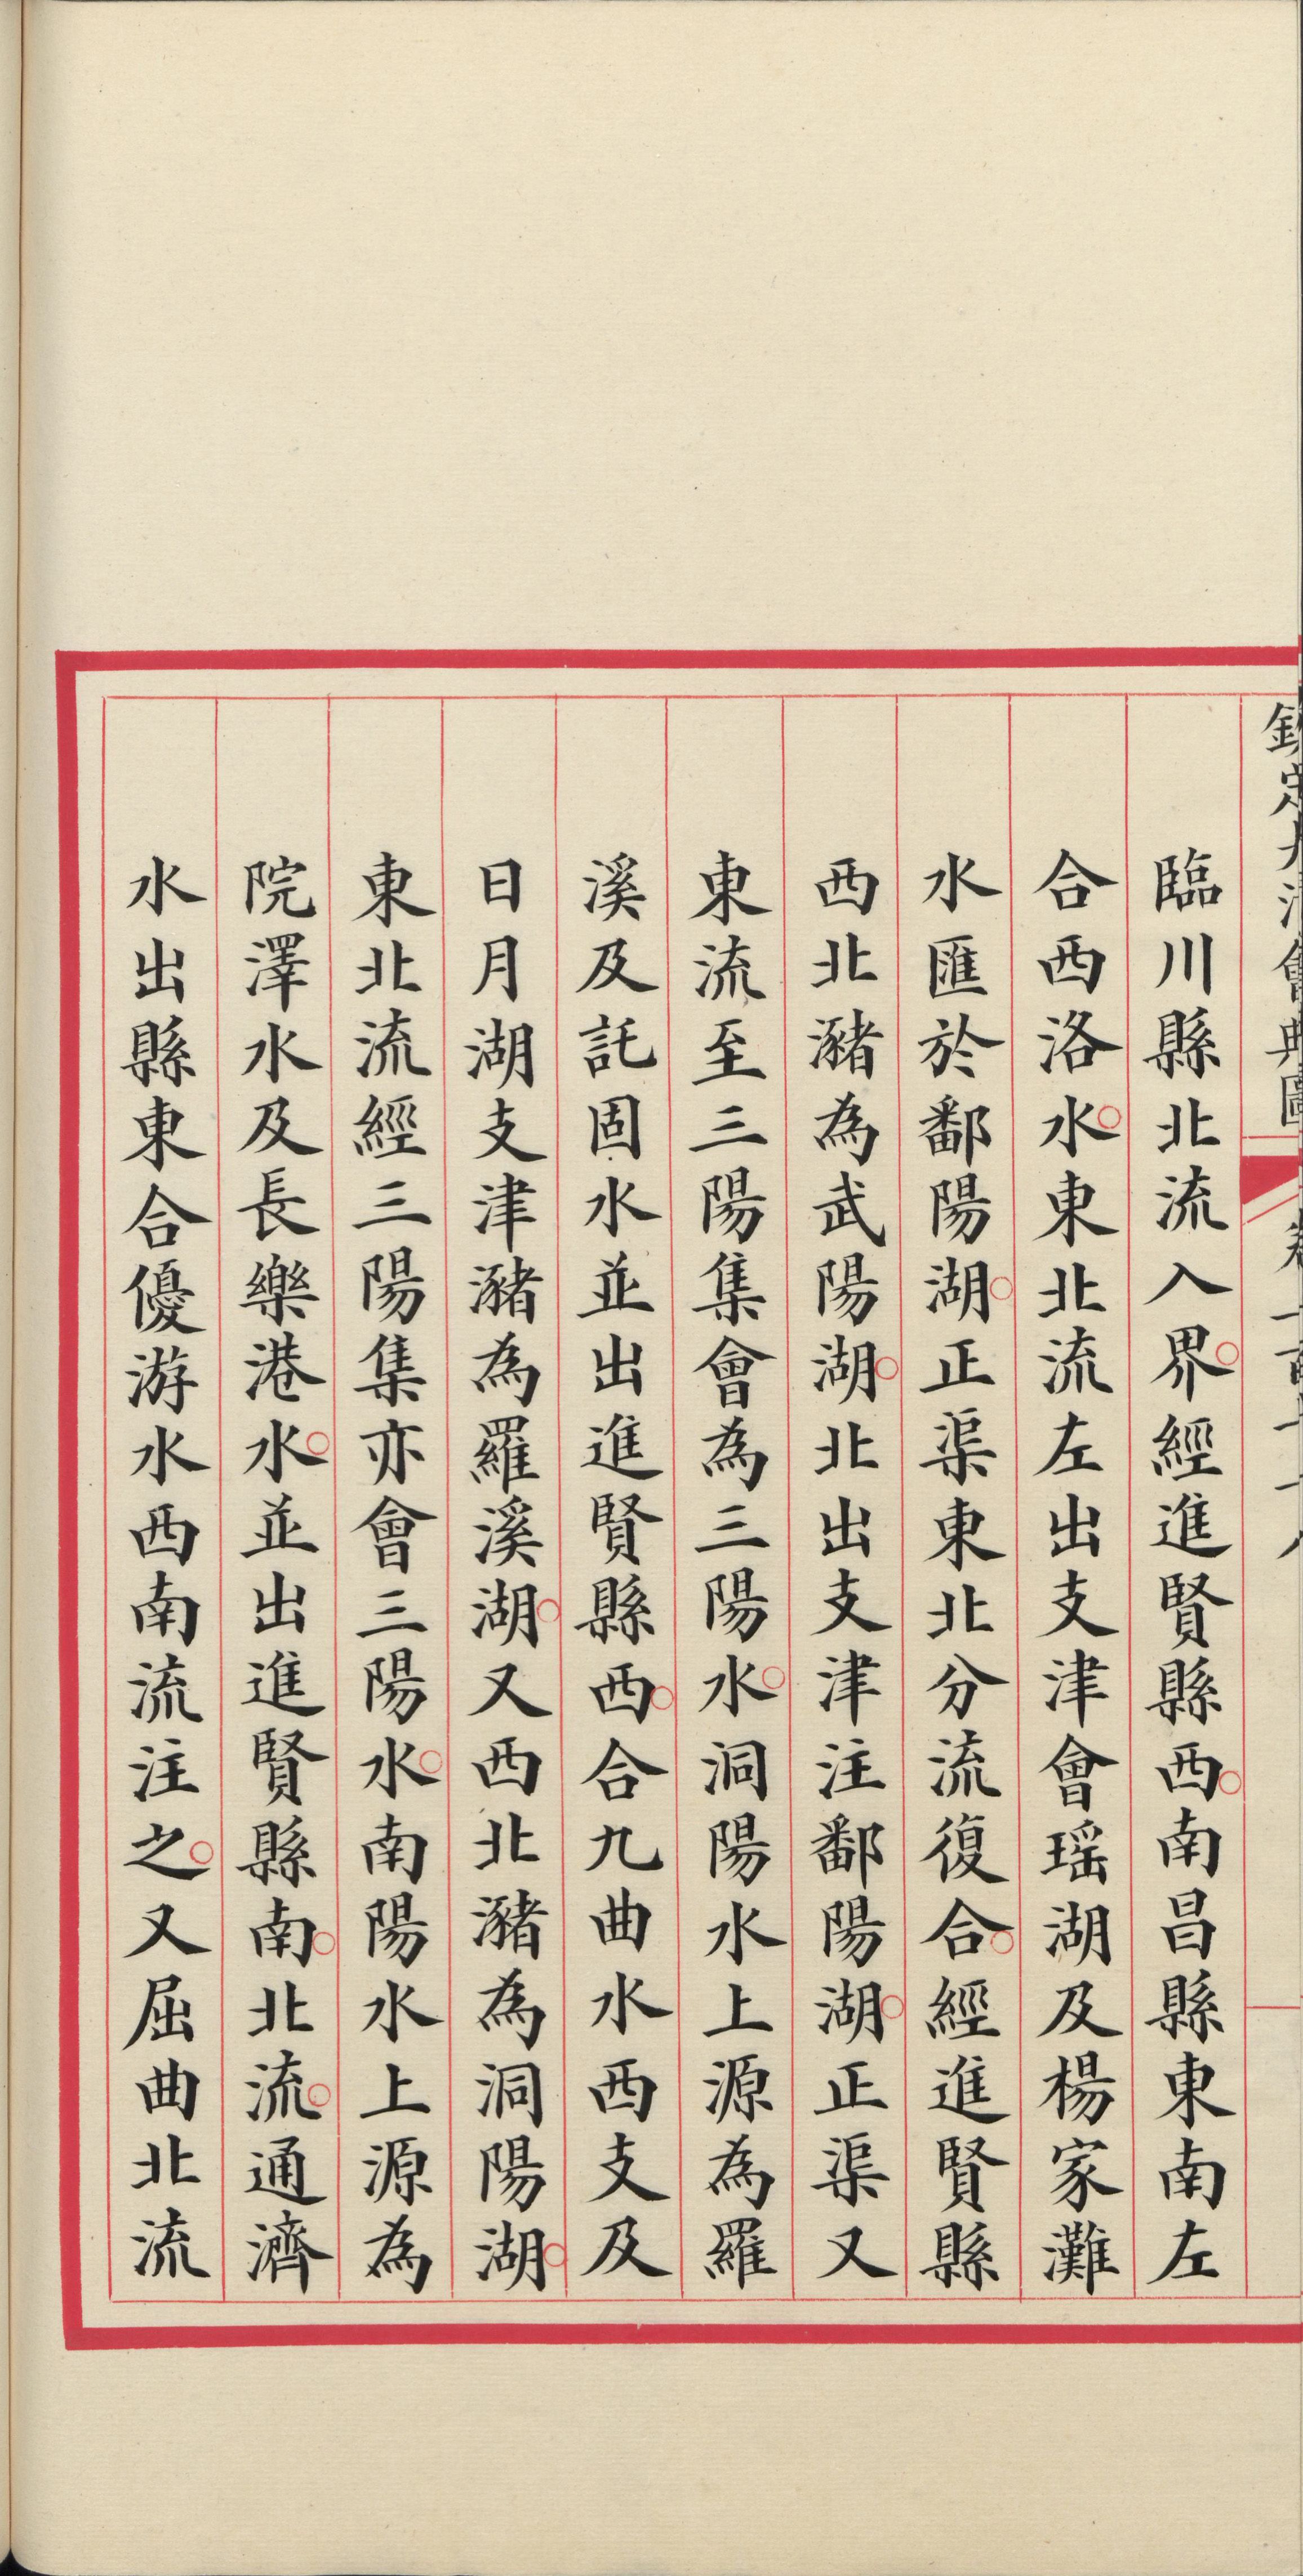 臨川縣北流入界○經進賢縣西○南昌縣東南左
合西洛水○東北流左出支津會瑶湖及楊家灘
水匯於鄱陽湖○正渠東北分流復合○經進賢縣
西北瀦為武陽湖○北出支津注鄱陽湖○正渠又
東流至三陽集會為三陽水○洞陽水上源為羅
溪及託固水並出進賢縣西○合九曲水西支及
日月湖支津瀦為羅溪湖○又西北瀦為洞陽湖○
東北流經三陽集亦會三陽水○南陽水上源為
院澤水及長樂港水○並出進賢縣南○北流○通濟
水出縣東合優游水西南流注之○又屈曲北流